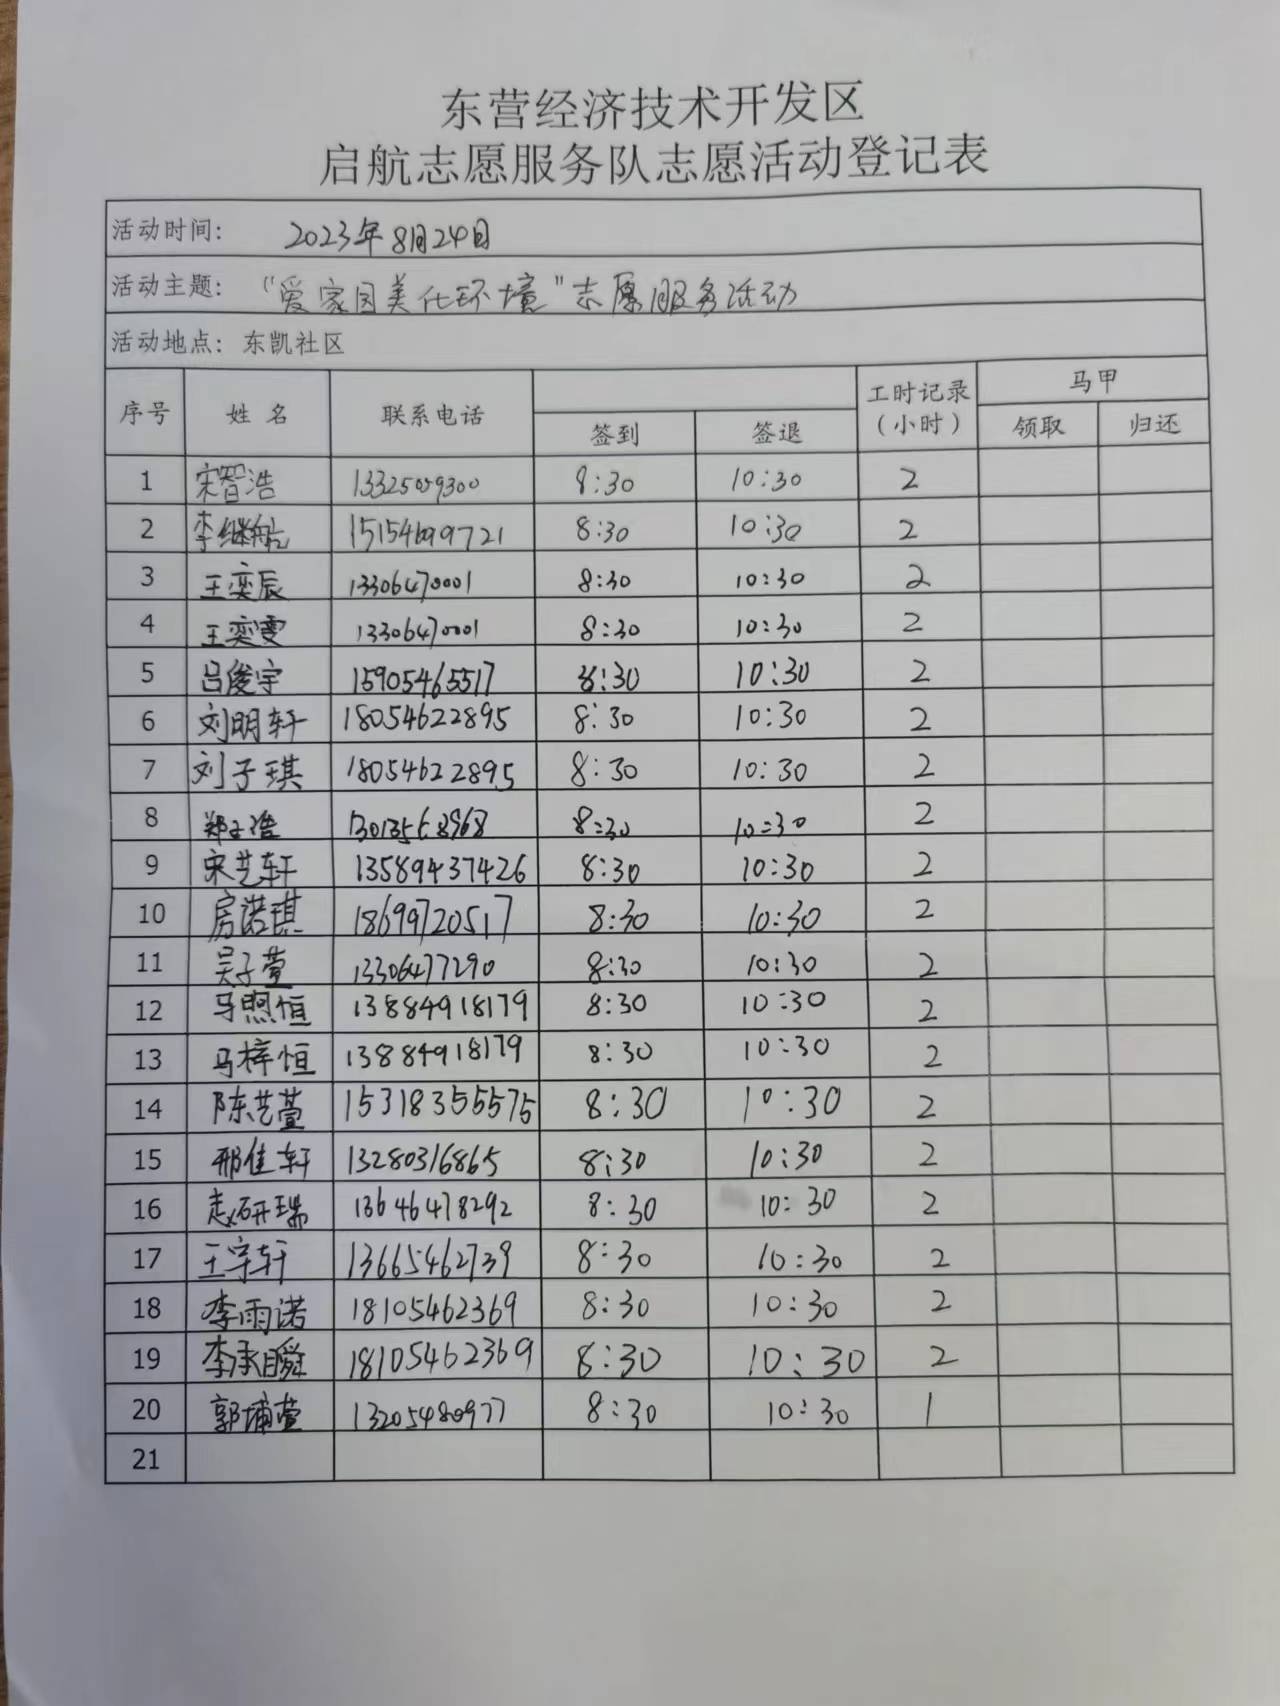 东营经济技术开发区
启航志愿服务队志愿活动登记表
活动时间： 2023年8月24日
活动主题： “爱家园美化环境”志愿服务活动
活动地点：东凯社区
序号 姓 名 联系电话 签到 签退 工时记录（小时） 马甲 领取 归还
1 宋智浩 13325059300 8:30 10:30 2
2 李继航 15154699721 8:30 10:30 2
3 王奕辰 13306470001 8:30 10:30 2
4 王奕雯 13306470001 8:30 10:30 2
5 吕俊宇 15905465517 8:30 10:30 2
6 刘明轩 18054622895 8:30 10:30 2
7 刘子琪 18054622895 8:30 10:30 2
8 郑子浩 8:30 10:30 2
9 宋艺轩 13589437426 8:30 10:30 2
10 房诺琪 18699720517 8:30 10:30 2
11 吴子萱 13306477290 8:30 10:30 2
12 马煦恒 13884918179 8:30 10:30 2
13 马梓恒 13884918179 8:30 10:30 2
14 陈艺萱 15318355575 8:30 10:30 2
15 邢佳轩 13280316865 8:30 10:30 2
16 13646478292 8:30 10:30 2
17 王宇轩 13665462739 8:30 10:30 2
18 李雨诺 18105462369 8:30 10:30 2
19 李承瞬 18105462369 8:30 10:30 2
20 郭埔萱 13205480977 8:30 10:30 1
21